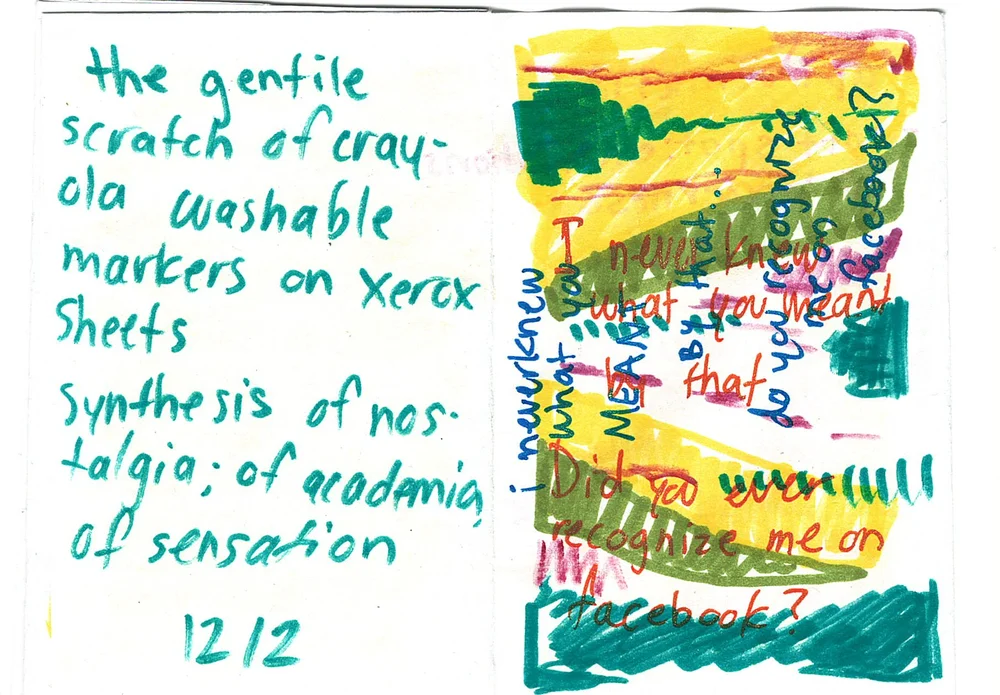 the gentile
scratch of cray-
ola washable
markers on xerox
sheets
synthesis of nos-
talgia; of academia,
of sensation
12/2
I never knew
what you meant
by that
Did you ever
recognize me on
facebook?
i neverknew
what you
MEANT
By that...
do you recognize
me on
facebook!?